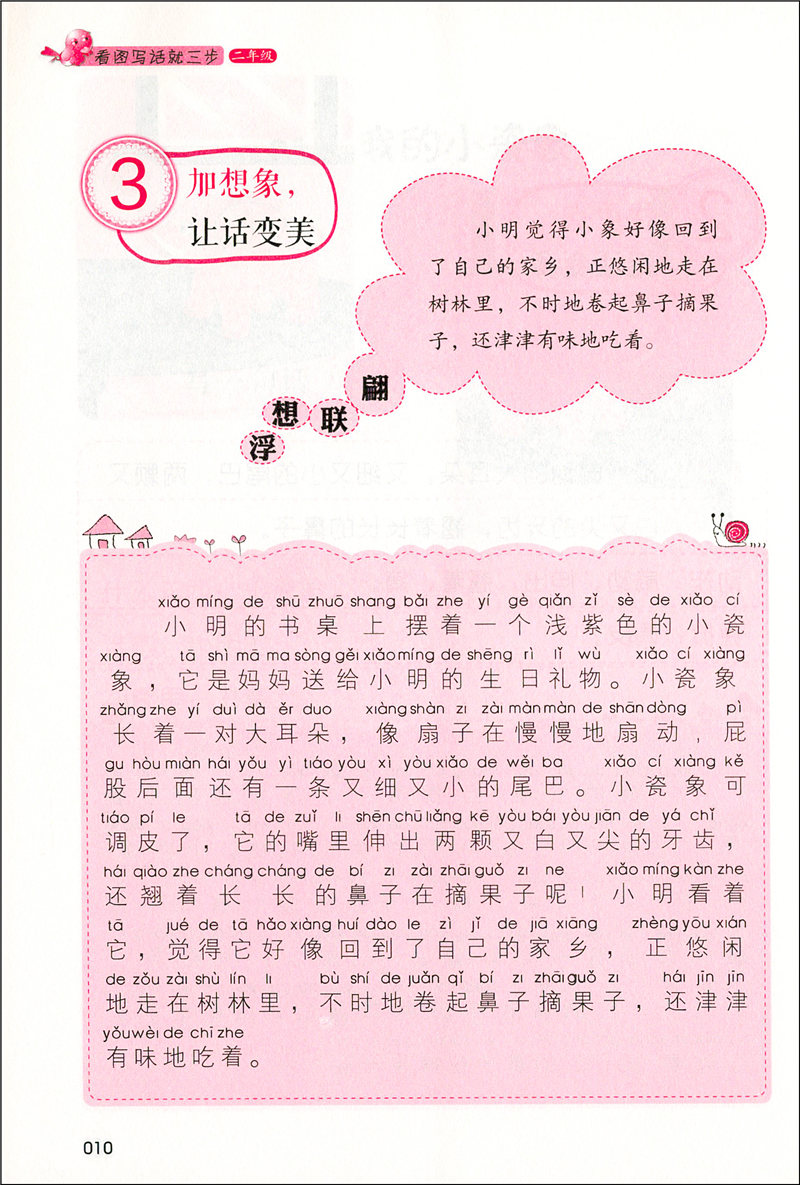 看图写话就三步 二年级
3
加想象，
让话变美
小明觉得小象好像回到
了自己的家乡，正悠闲地走在
树林里，不时地卷起鼻子摘果
子，还津津有味地吃着。
浮
想
联
翩
xiǎo míng de shū zhuō shang bǎi zhe yí gè qiǎn zǐ sè de xiǎo cí
小明的书桌上摆着一个浅紫色的小瓷
xiàng tā shì mā ma sòng gěi xiǎo míng de shēng rì lǐ wù xiǎo cí xiàng
象，它是妈妈送给小明的生日礼物。小瓷象
zhǎng zhe yí duì dà ěr duo xiàng shàn zi zài màn màn de shān dòng pì
长着一对大耳朵，像扇子在慢慢地扇动，屁
gu hòu miàn hái yǒu yì tiáo yòu xì yòu xiǎo de wěi ba xiǎo cí xiàng kě
股后面还有一条又细又小的尾巴。小瓷象可
tiáo pí le tā de zuǐ li shēn chū liǎng kē yòu bái yòu jiān de yá chǐ
调皮了，它的嘴里伸出两颗又白又尖的牙齿，
hái qiào zhe cháng cháng de bí zi zài zhāi guǒ zi ne xiǎo míng kàn zhe
还翘着长长的鼻子在摘果子呢！小明看着
tā jué de tā hǎo xiàng huí dào le zì jǐ de jiā xiāng zhèng yōu xián
它，觉得它好像回到了自己的家乡，正悠闲
de zǒu zài shù lín li bù shí de juǎn qǐ bí zi zhāi guǒ zi hái jīn jīn
地走在树林里，不时地卷起鼻子摘果子，还津津
yǒu wèi de chī zhe
有味地吃着。
010